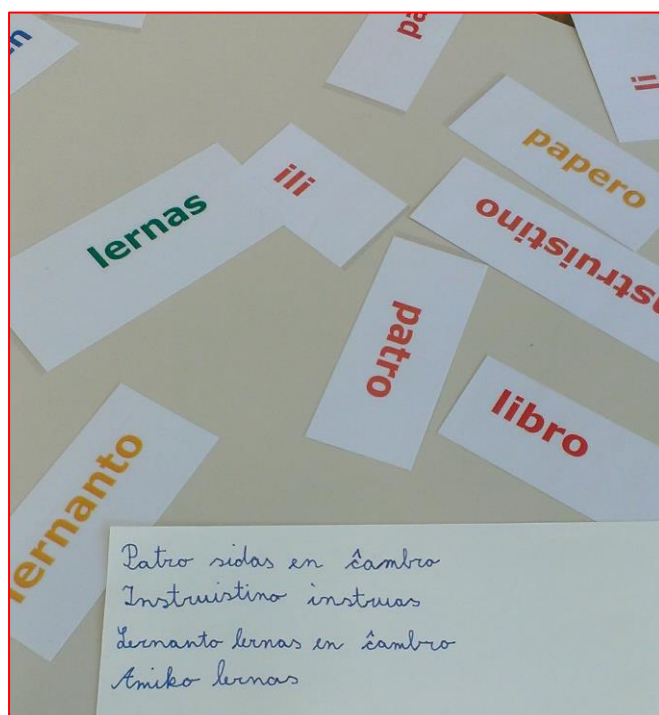 en
ili
papero
lernas
ili
instruistino
patro
libro
lernanto
Patro sidas en ĉambro
Instruistino instruas
Lernanto lernas en ĉambro
Amiko lernas